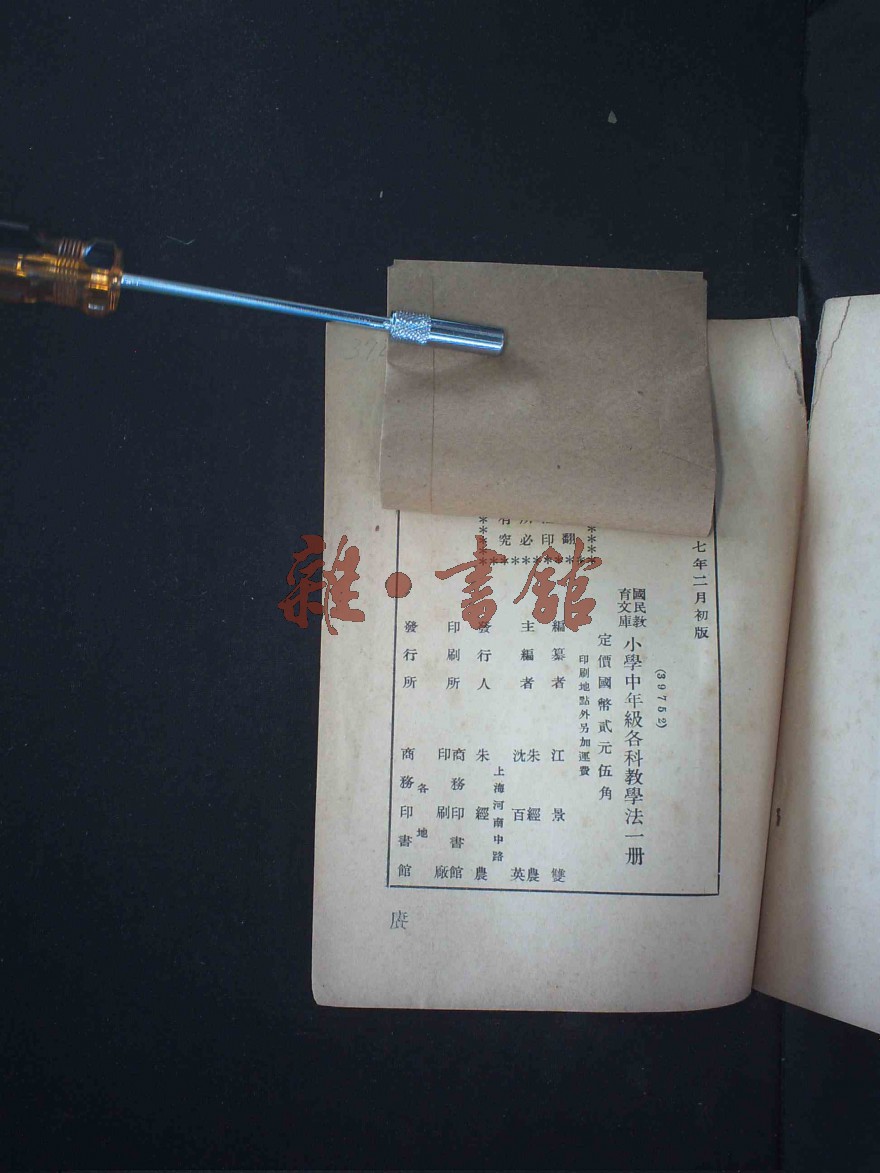 七年二月初版
(39752)
國民教育文庫 小學中年級各科教學法一册
定價國幣貳元伍角
印刷地點外另加運費
翻印必究
編纂者 江景雙
主編者 朱經農 沈百英
上海河南中路
發行人 朱經農
印刷所 商務印書館印刷廠
各地
發行所 商務印書館
庹
雜·書館